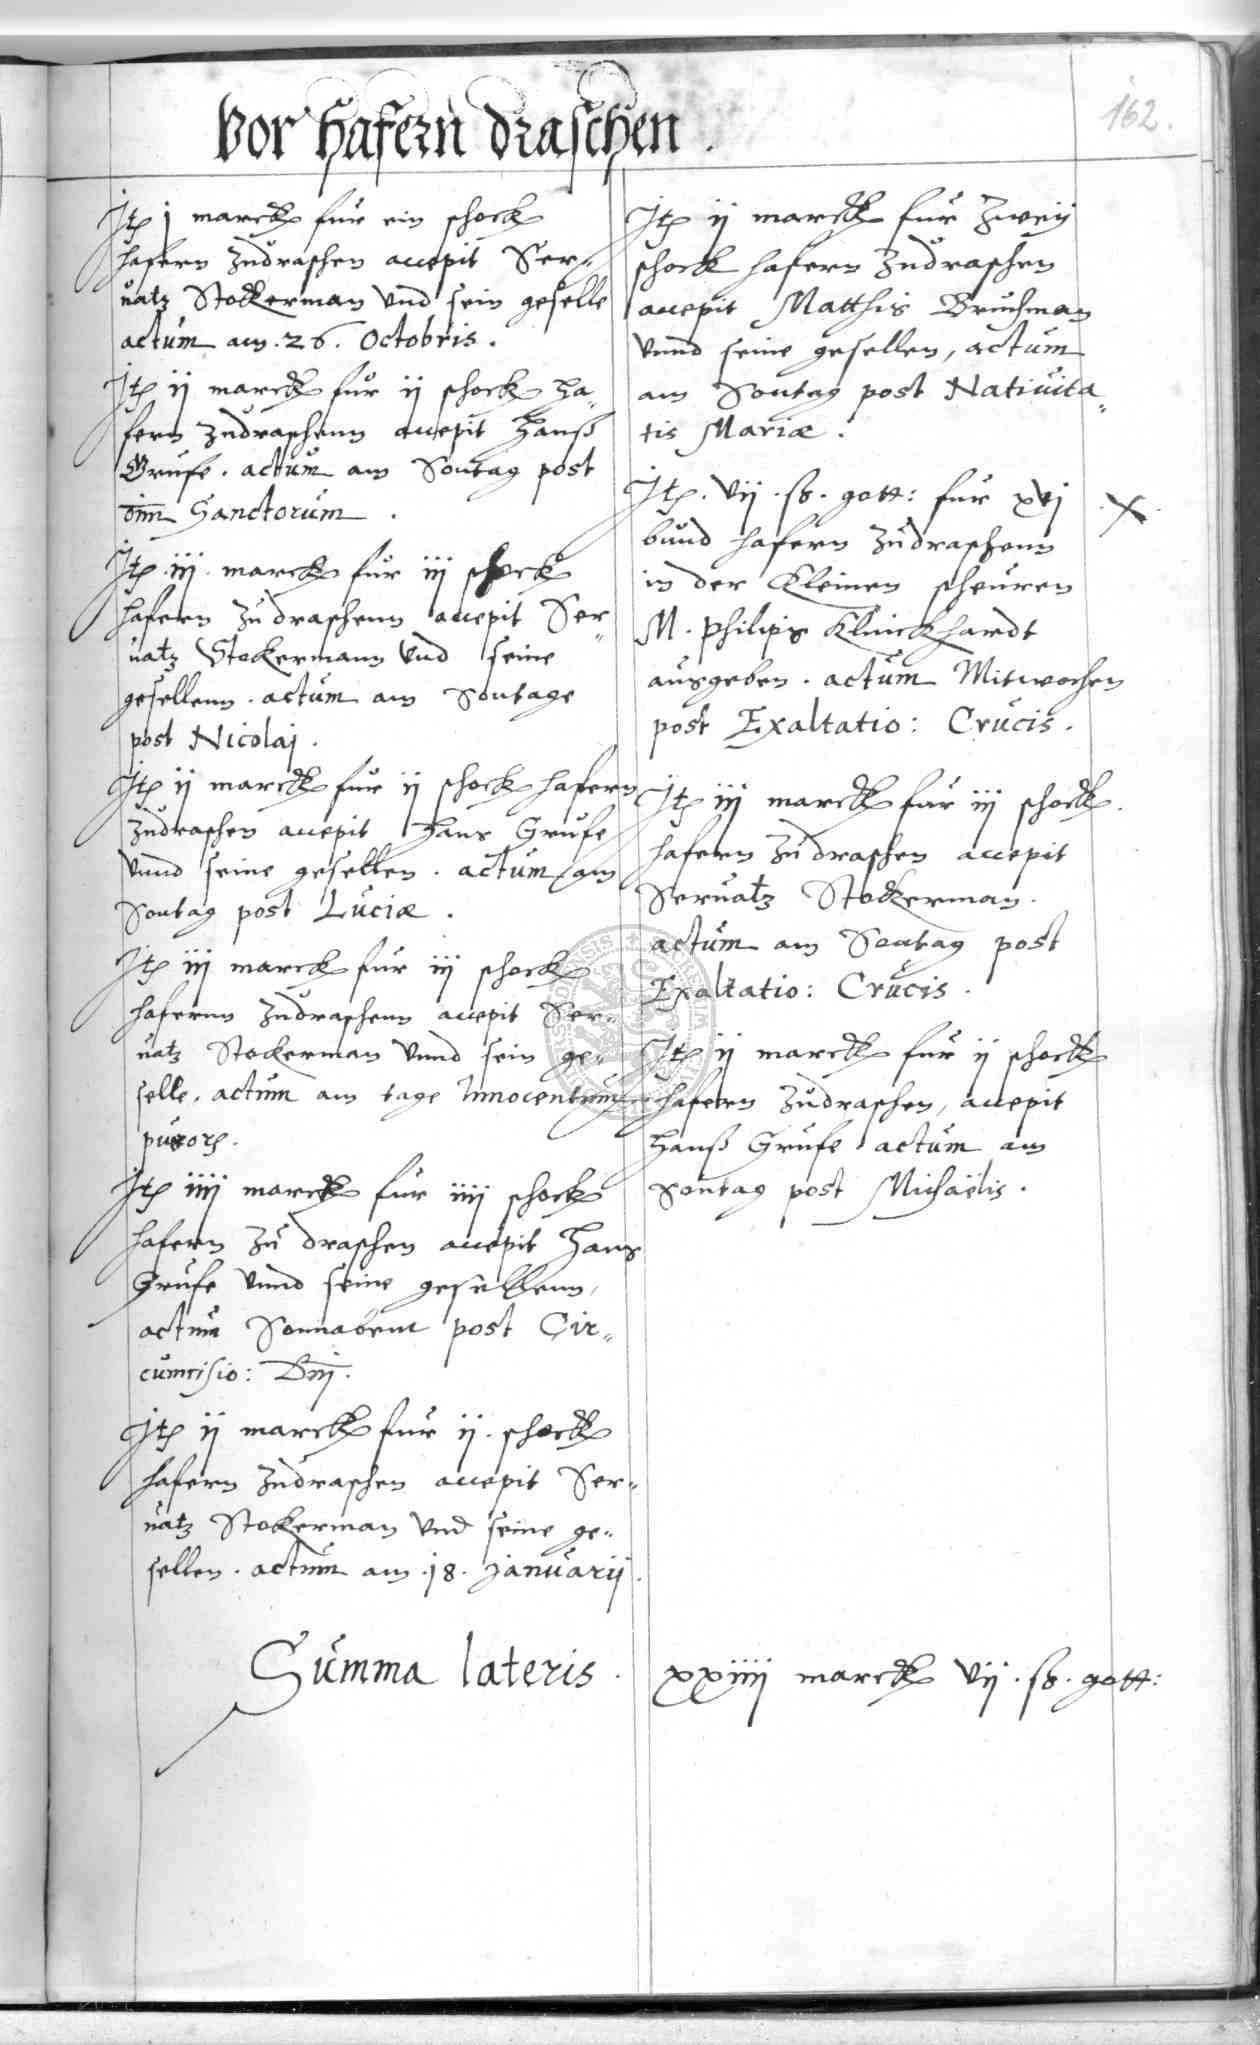 162.
Vor Hafern draschen.
Jtem j marck fur ein schock
hafern zudraschen accepit Ser„
uatz Stockerman Vnd sein geselle
actum am .26. Octobris.
Jtem ij marck fur ij schock ha„
fern zudraschenn accepit Hanß
Grufe. actum am Sontag post
om̅ Sanctorum.
Jtem .iij. marck fur iij schock
hafern zu draschenn accepit Ser„
uatz Stockermann Vnd seine
gesellenn. actum am Sontage
post Nicolaj.
Jtem ij marck fur ij schock hafern
zudraschen accepit Hans Grufe
Vnnd seine gesellen. actum am
Sontag post Luciæ.
Jtem iij marck fur iij schock
hafernn zudraschenn accepit Ser„
uatz Stockerman Vnnd sein ge„
selle. actum am tage Innocentum
pueror.
Jtem iiij marck fur iiij schock
hafern zu draschen accepit Hans
Grufe Vnnd seine gesellenn,
actum Sonnabent post Cir„
cumcisio: Dnj.
Jtem ij marck fur ij. schock
hafern zudraschen accepit Ser„
uatz Stockerman Vnd seine ge„
sellen. actum am .18. Januarij.
Jtem ij marck fur Zweij
schock hafern zudraschen
accepit Matthis Bruchman
Vnnd seine gesellen, actum
am Sontag post Natiuita„
tis Mariæ.
Jtem. Vij. sb. gott: fur xvj
bund hafern zudraschenn
in der Kleinen scheuren
M. Philips Klinckhardt
ausgeben. actum Mitwochen
post Exaltatio: Crucis.
X
Jtem iij marck fur iij schock.
hafern zu draschen accepit
Seruatz Stockerman.
actum am Sontag post
Exaltatio: Crucis.
Jtem ij marck fur ij schock
hafern zudraschen, accepit
Hanß Grufe actum am
Sontag post Michaëlis.
Summa lateris. xxiiij marck Vij. sb. gott: